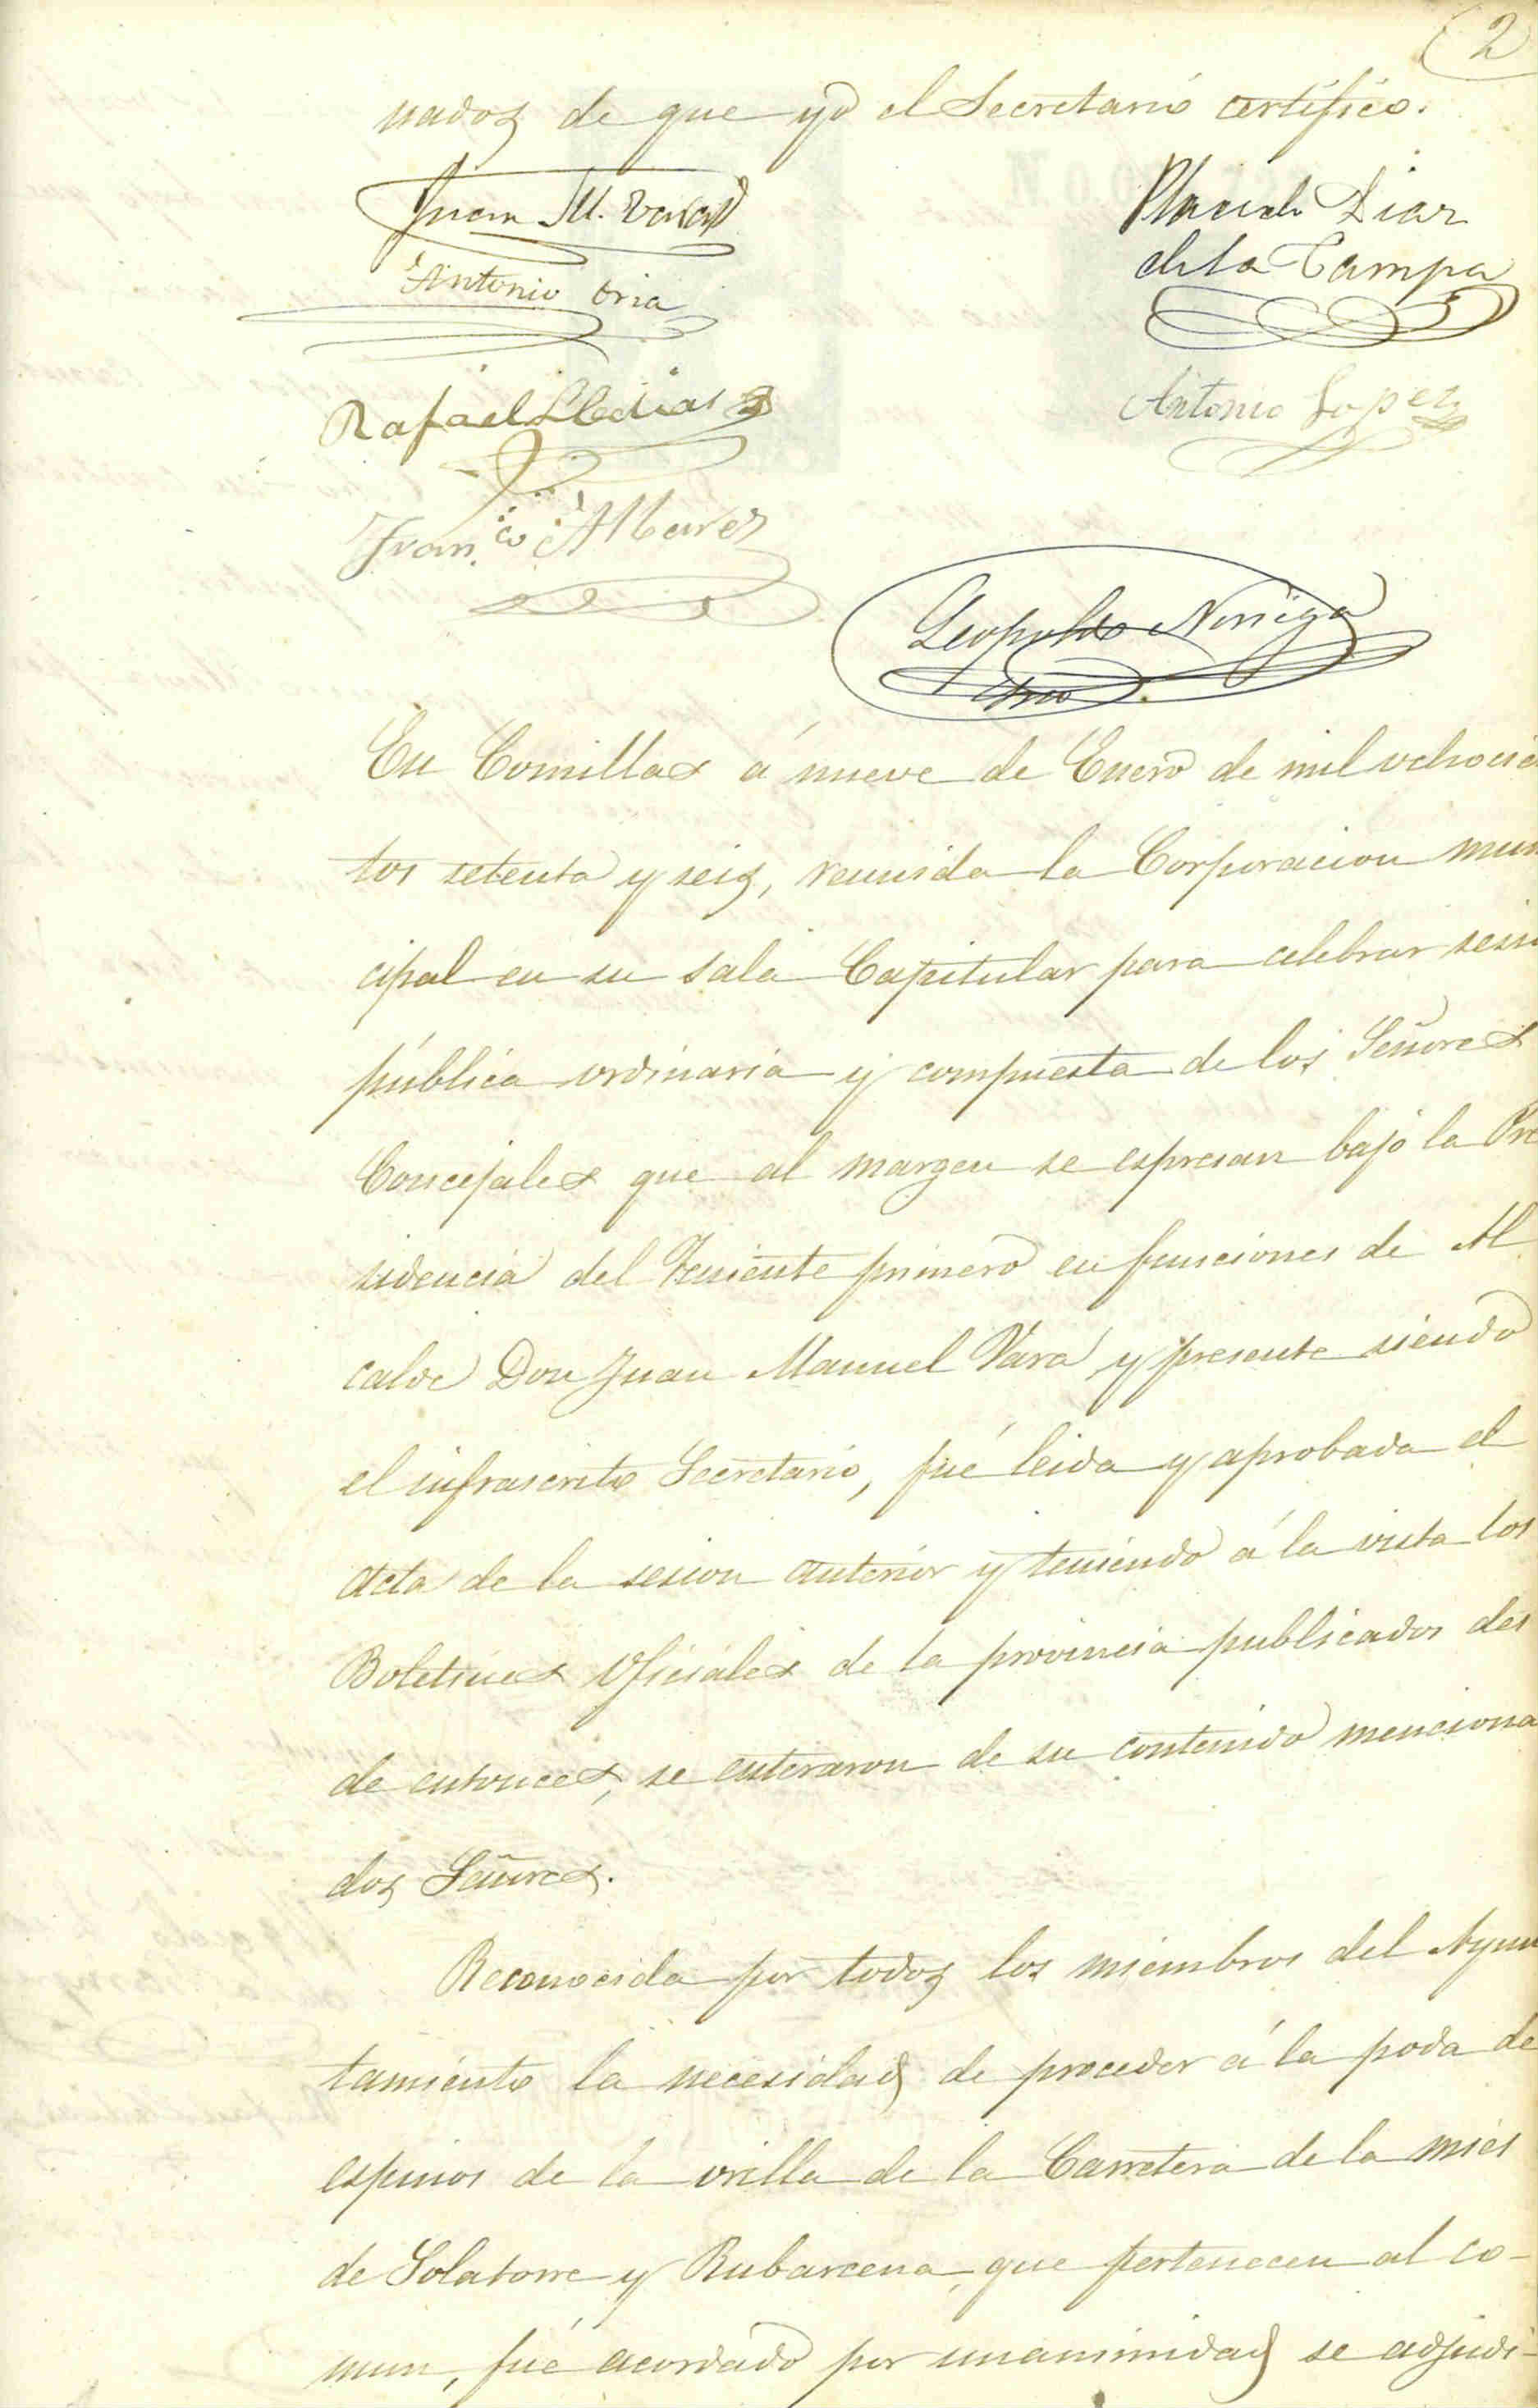 2
nados de que yo el Secretario certifico.
Juan M. Vara
Placido Diaz
de la Campa
Antonio Oria
Rafael Lledias
Antonio Lopez
Fran.co Albarez
Leopoldo Noriega
Srio
En Comillas á nueve de Enero de mil ochocien
tos setenta y seis, reunida la Corporacion muni
cipal en su sala Capitular para celebrar sesion
pública ordinaria y compuesta de los Señores
Concejales que al margen se espresan bajo la Pre
sidencia del Teniente primero en funciones de Al
calde Don Juan Manuel Vara y presente siendo
el infrascrito Secretario, fué leida y aprobada el
acta de la sesion anterior y teniendo á la vista los
Boletines Oficiales de la provincia publicados des
de entonces, se enteraron de su contenido menciona
dos Señores.
Reconocida por todos los miembros del Ayun
tamiento la necesidad de proceder á la poda de
espinos de la orilla de la Carretera de la mies
de Solatorre y Rubarcena, que pertenecen al co-
mun, fué acordado por unanimidad se adjudi-